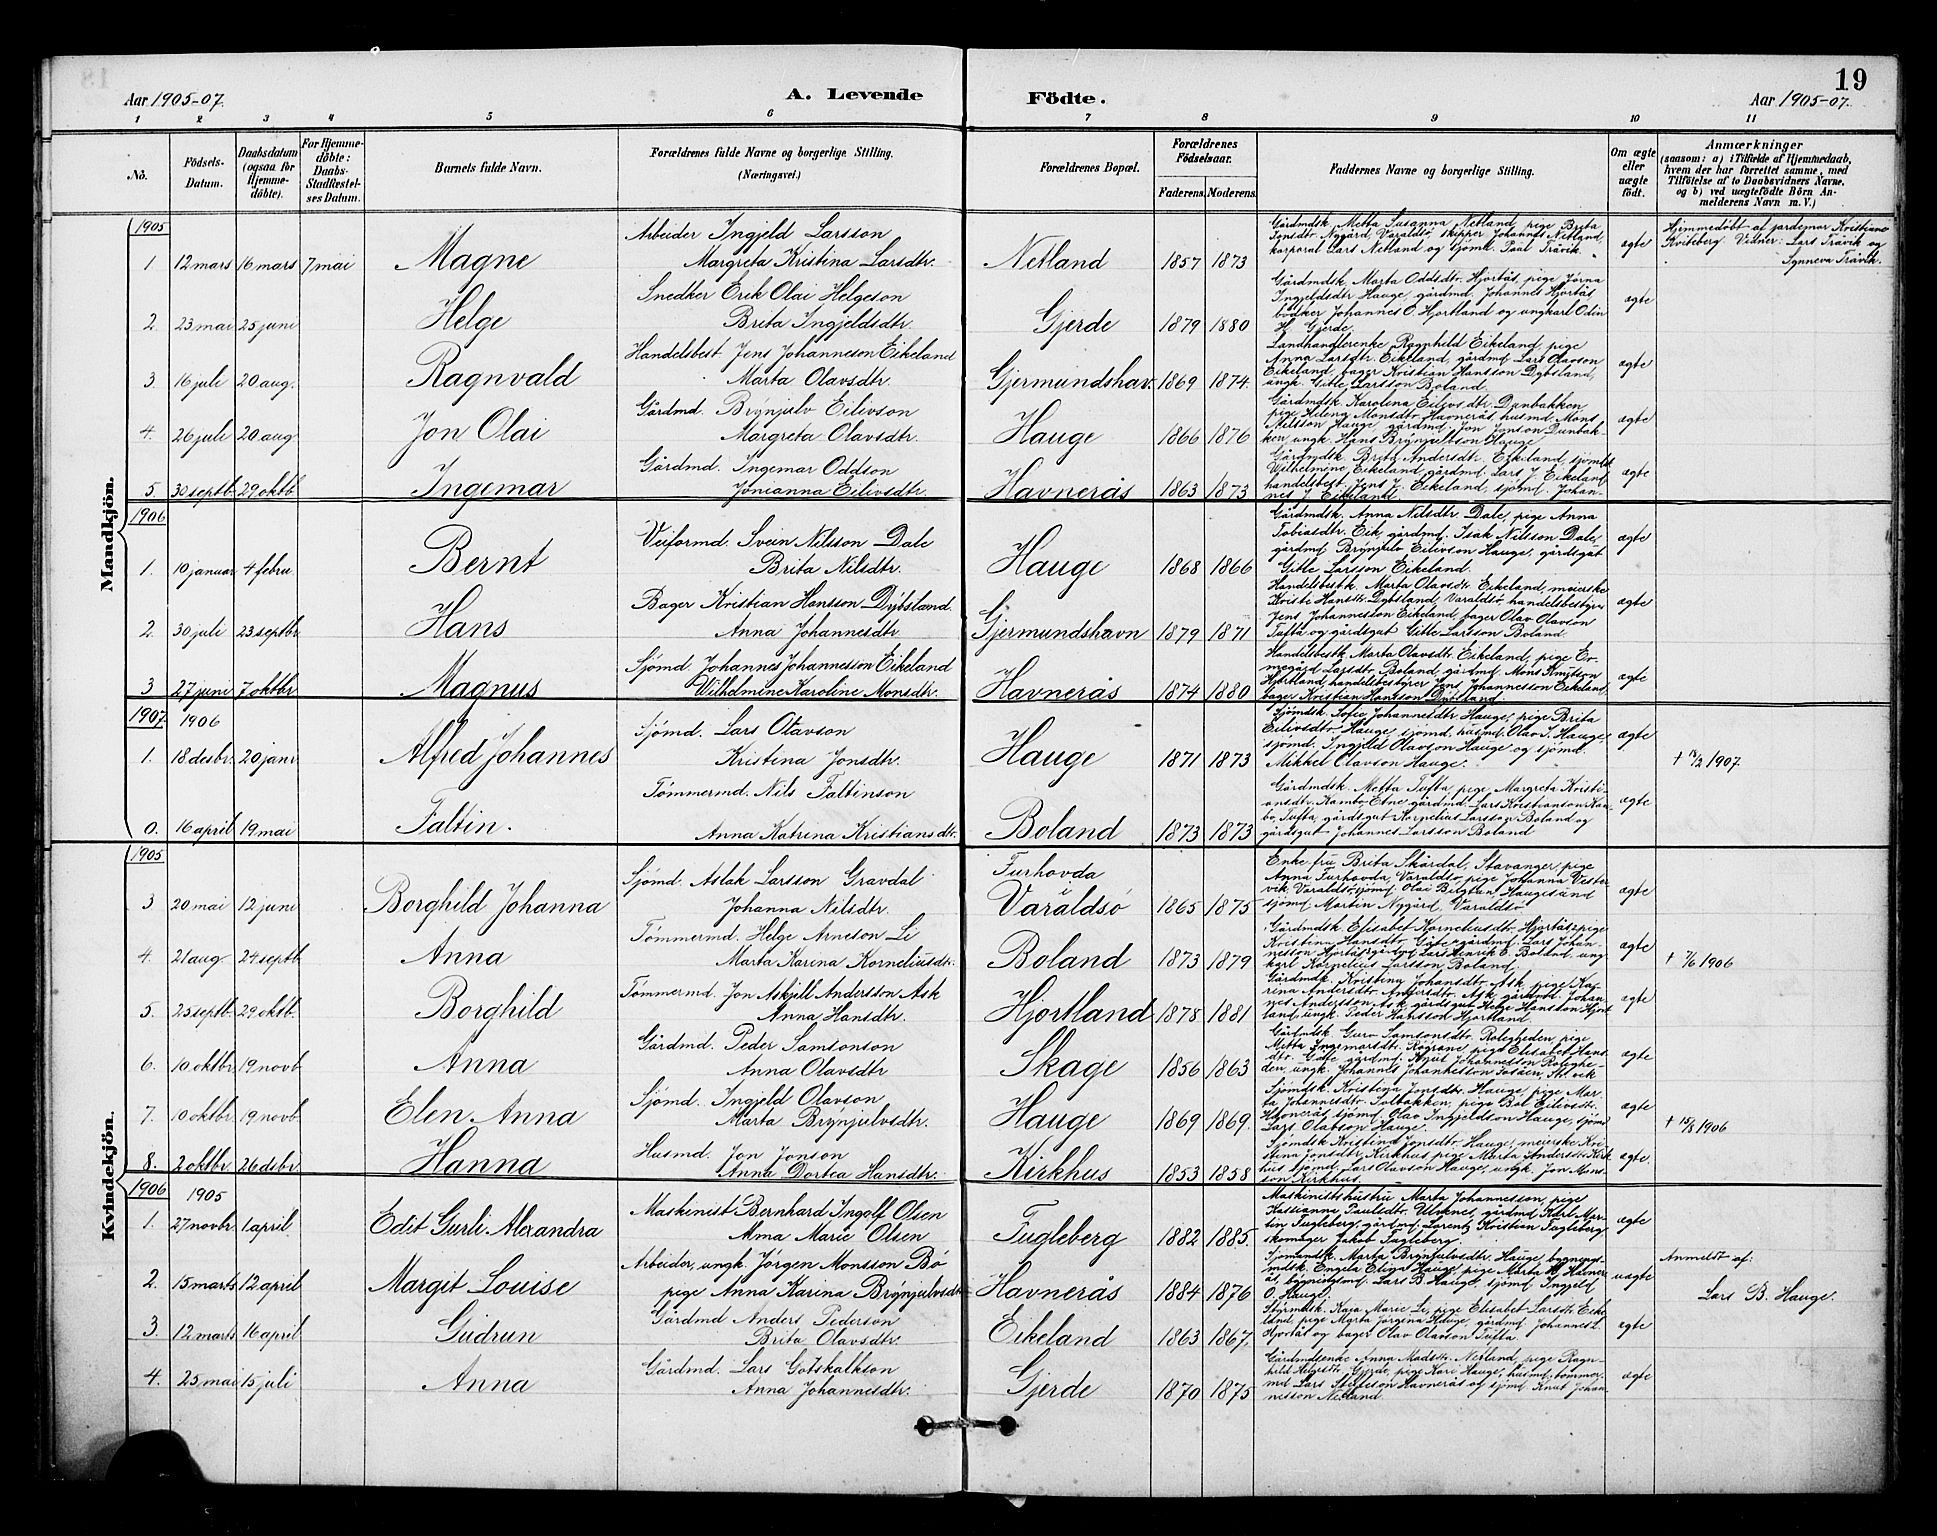 19
Aar 1905-07.
A. Levende
Födte.
Aar 1905-07.
1 2 3 4 5 6 7 8 9 10 11
No.
Födsels-Datum.
Daabsdatum (ogsaa for Hjemmedöbte).
For Hjemmedöbte: Daabs-Stadfæstelses Datum.
Barnets fulde Navn.
Forældrenes fulde Navne og borgerlige Stilling.
(Næringsvei.)
Forældrenes Bopæl.
Forældrenes Födselsaar.
Faderens. Moderens.
Faddernes Navne og borgerlige Stilling.
Om ægte eller uægte födt.
Anmærkninger
(saasom: a) i Tilfælde af Hjemmedaab,
hvem der har forrettet samme, med
Tilföielse af to Daabsvidners Navne,
og b) ved uægtefödte Börn An-
melderens Navn m. V.)
Mandkjön.
1905
1 12 mars 16 mars 7 mai Magne
Arbeider Ingjeld Larsson
Margreta Kristina Larsdtr.
Netland 1857 1873
Gårdmdsk. Metta Susanna Netland, pige Brita
Nygård, Varaldsö skipper Johannes Netland,
korporal Lars Netland og sjömd. Paul Tråvik.
ægte
Hjemmedöbt af jordemor Kristiane
Kviteberg Vidner: Lars Tråvik og
Synneva Tråvik.
2. 23 mai 25 juni Helge
Snedker Erik Olai Helgeson
Brita Ingjeldsdtr.
Gjerde 1879 1880
Gårdmdsk. Marta Oddsdtr. Hjortås, pige Jórna
Ingjeldsdtr Hauge, gårdmd. Johannes Hjortås
bödker Johannes O. Hjortland og ungkarl Odin
H. Gjerde.
ægte
3. 16 juli 20 aug. Ragnvald
Handelsbest. Jens Johanneson Eikeland
Marta Olavsdtr.
Gjermundshav. 1869 1874.
Landhandlerenke Ragnhild Eikeland, pige
Anna Larsdtr. Eikeland, gårdmd Lars Olavson
Eikeland, bager Kristian Hansson Dybsland,
ungk. Gitle Larsson Boland.
ægte
4. 26 juli 20 aug Jon Olai
Gårdmd. Brynjulv Eilivson
Margreta Olavsdtr.
Hauge 1866 1876
Gårdmdsk. Karolina Eilivsdtr. Dunbakken
pige Helena Monsdtr. Havnerås, husmd. Mons
Nilsson Hauge, gårdmd. Jon Jonson Dunbak-
ken, ungk. Hans Brynjulvson Hauge
ægte
5. 30 septb. 29 oktb. Ingemar
Gårdmd. Ingemar Oddson
Jonianna Eilivsdtr.
Havnerås 1863 1873
Gårdmdsk. Brita Andersdtr. Eikeland, sjömdsk
Wilhelmine Eikeland, gårdmd. Lars J. Eikeland
handelsbest. Jens J. Eikeland, sjömd. Johan-
nes J. Eikeland
ægte
1906
1. 10 januar 4 febru. Bernt
Veiformd. Svein Nilsson Dale
Brita Nilsdtr.
Hauge 1868 1866
Gårdmdsk. Anna Nilsdtr Dale, pige Anna
Tobiasdtr. Eik, gårdmd. Isak Nilsson Dale,
gårdmd Brynjulv Eilivson Hauge, gårdsgut
Gitle Larsson Eikeland.
ægte
2. 30 juli 23 septbr Hans
Bager Kristian Hansson Dybsland.
Anna Johannesdtr.
Gjermundshavn 1879 1871
Handelsbestk. Marta Olavsdtr Eikeland, meierske
Kristi Hansdtr. Dybsland, Varaldsö, handelsbestyrer
Jens Johannesson Eikeland, bager Olav Olavson
Tufta og gårdsgut Gitle Larsson Boland.
ægte
3 27 juni 7 oktbr Magnus
Sjömd. Johannes Johannesson Eikeland
Wilhelmine Karoline Monsdtr.
Havnerås 1874 1880
Handelsbestk. Marta Olavsdtr. Eikeland, pige Er-
megård Larsdtr. Boland, gårdmd. Mons Knutson
Hjortland, handelsbestyrer Jens Johannesson Eikeland
bager Kristian Hansson Dybsland
ægte
1907. 1906
1. 18 desbr. 20 janr Alfred Johannes
Sjömd. Lars Olavson
Kristina Jonsdtr.
Hauge 1871 1873
Sjömdsk. Sofie Johannesdtr. Hauge, pige Brita
Eilivsdtr. Hauge, sjömd. husmd. Olav S. Hauge,
sjömd. Ingjeld Olavson Hauge og sjömd.
Mikkel Olavson Hauge.
ægte
/2 1907.
0. 16 april 19 mai Faltin.
Tömmermd. Nils Faltinson
Anna Katrina Kristiansdtr.
Boland 1873 1873
Gårdmdsk. Metta Tufta, pige Margreta Kristi-
ansdtr. Kambo Etne gårdmd. Lars Kristianson Kam-
bo, Tufta, gårdsgut Kornelius Larsson Boland og
gårdsgut Johannes Larsson Boland
ægte
Kvindekjön.
1905
3 20 mai 12 juni Borghild Johanna
Sjömd. Aslak Larsson Gravdal
Johanna Nilsdtr.
Furhovda
Varaldsö 1865 1875
Enke fru Brita Skårdal, Stavanger, pige
Anna Furhovda Varaldsö, pige Johanna Vester
vik Varaldsö, sjömd. Olai Haugesund
sjömd Martin Nygård Varaldsö
ægte
4. 21 aug. 24 septb. Anna
Tömmermd. Helge Arneson Li
Marta Karina Korneliusdtr.
Boland 1873 1879
Gårdmdsk. Elisabet Korneliusdtr Hjortås, pige
Kristina Hansdtr. gårdmd. Lars Johan-
nesson Hjortås, gårdmd Lars Henrik E. Boland, ung
karl Kornelius Larsson Boland.
ægte
† 7/6 1906
5. 25 septb. 29 oktb. Borghild
Tömmermd. Jon Askjill Andersson Ask
Anna Hansdtr.
Hjortland 1878 1881
Gårdmdsk. Kristina Johansdtr. Ask, pige Ka-
rina Andersdtr. Ask gårdmd. Johan-
nes Andersson Ask, gårdsgut Helge Hansson Hjort
land, ungk. Peder Hansson Hjortland.
ægte
6. 10 oktbr. 19 novb. Anna
Gårdmd. Peder Samsonson
Anna Olavsdtr
Skage 1856 1863
Gårdmdsk Guro Samsonsdtr. Roligheden, pige
Metta Ingemarsdtr. Rögrane, pige Elisabet Hans
dtr. gårdmd. Johannesson Roloighe-
den, ungk. Johannes Johannesson
ægte
7. 10 oktbr 19 novb. Elen Anna
Sjömd. Ingjeld Olavson
Marta Brynjulvsdtr.
Hauge 1869 1869.
Sjömdsk. Kristina Jonsdtr. Hauge, pige Mar-
ta Johannesdtr. Solbakken, pige Eilivsdtr.
Havnerås sjömd. Olav Ingjeldson Hauge, sjömd
Lars Olavson Hauge.
ægte
† 15/8 1906
8. 2 oktbr. 26 desbr. Hanna
Husmd. Jon Jonson
Anna Dortea Hansdtr.
Kirkhus 1853 1858
Sjömdsk. Kristina Jonsdtr. Hauge, meierske Kri-
stina Jonsdtr. Kirkhus pige Marta Andersdtr Kirk
hus sjömd. Lars Olavson Hauge, ungk. Jon Mons-
son Kirkhus.
ægte.
1906 1905
1. 27 novbr. 1 april Edit Gurli Alexandra
Maskinist Bernhard Ingolf Olsen
Alma Marie Olsen
Fugleberg 1882 1885.
Maskinistshustru Marta Johannesson, pige
Kassianna Paulsdtr. gårdmd Karl Mar-
tin Fugleberg, gårdmd. Lorentz Kristian Fugleberg
skomager Jakob Fugleberg.
ægte
2. 15 marts 12 april Margit Louise
Arbeider, ungk. Jörgen Monsson Bö
pige Anna Karina Brynjulvsdtr.
Havnerås 1884 1876
Sjömandsk. Marta Brynjulvsdtr. Hauge bygnings
mdsk. Engela Hauge, pige Marta Havner-
ås, bygnigsmd. Lars B. Hauge, sjömd. Ingjeld
O. Hauge.
uægte
Anmeldt af:
Lars B. Hauge.
3. 12 marts 16 april Gudrun
Gårdmd Anders Pederson
Brita Olavsdtr.
Eikeland 1863 1867.
Styrmdsk. Kaja Marie Li, pige Elisabet Larsdtr. Eike
land, pige Marta Jörgina Hauge, gårdmd Johannes L.
Hjortås og bager Olav Olavson Tufta.
ægte
4. 25 mai 15 juli Anna
Gårdmd. Lars Gotskalkson
Anna Johannesdtr.
Gjerde 1870 1875
Gårdmdsenke Anna Madsdtr Netland, pige Ragn-
hild Helgesdtr. Gjerde, pige Kari Hauge, husmd, tömmer-
md Lars Havnerås og sjömd Knut Johan-
nesson Netland
ægte